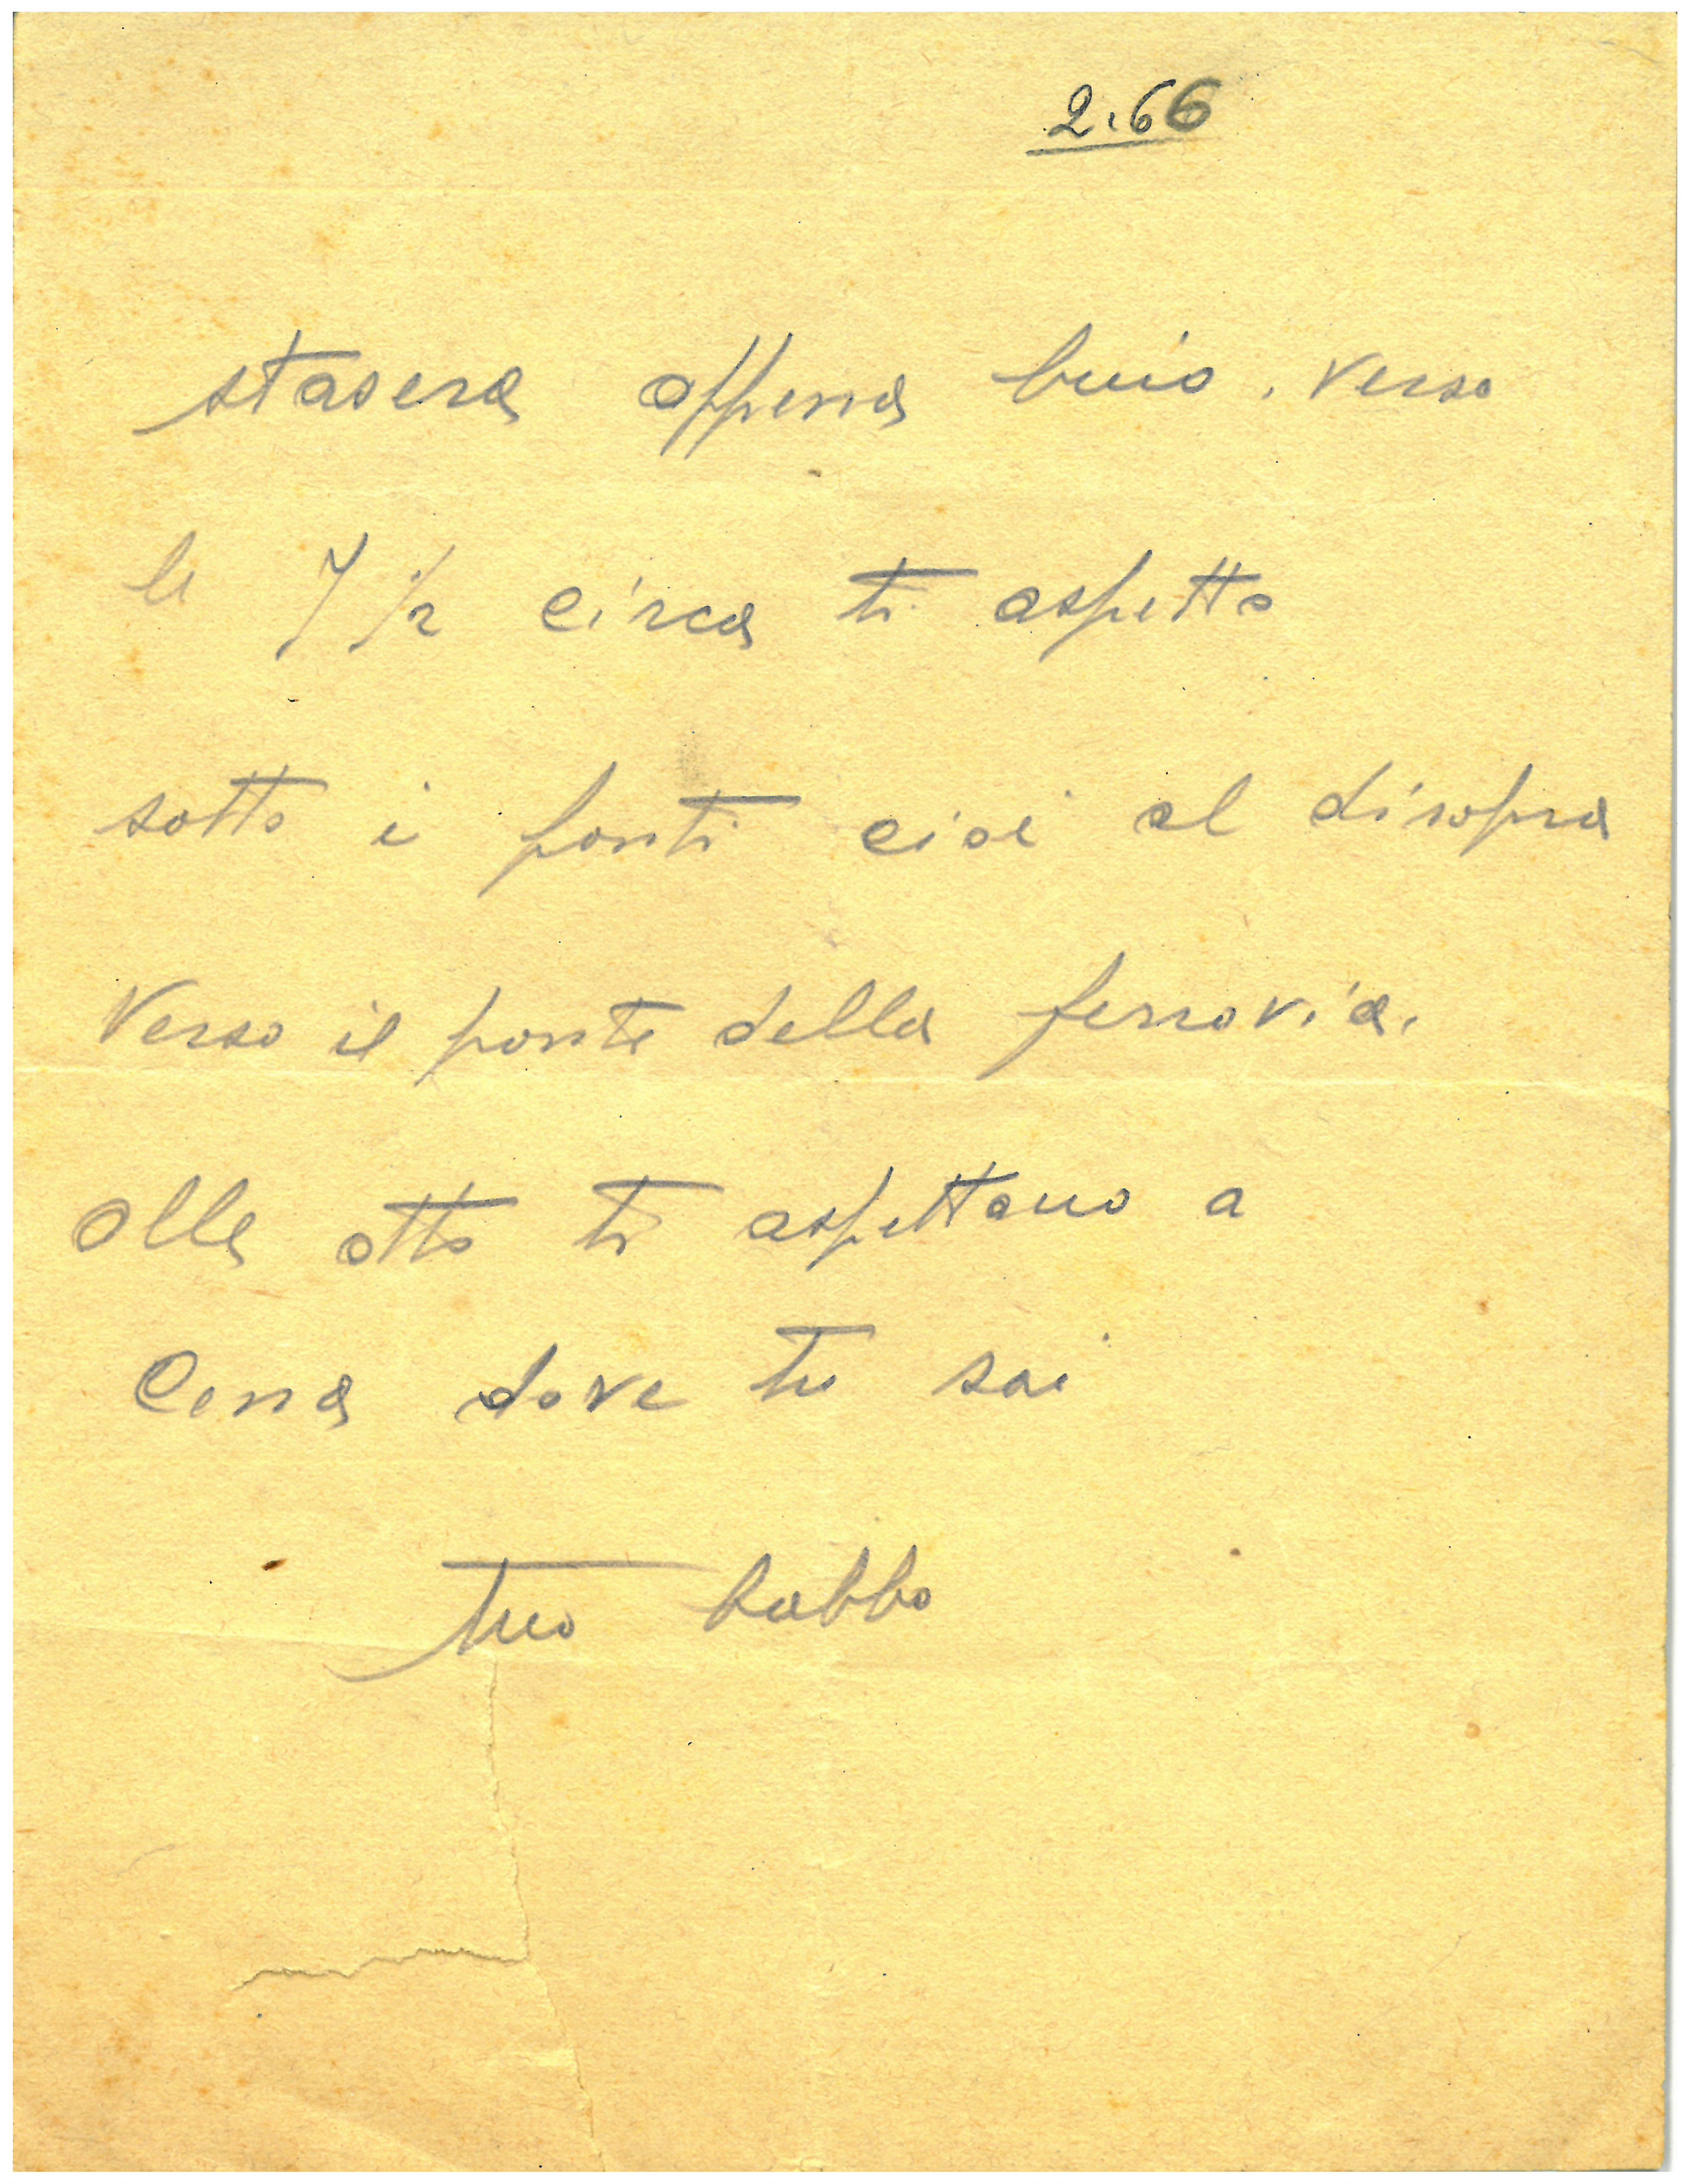 2.66
stasera appena buio. verso
le 7 1/2 circa ti aspetto
sotto i ponti cioè al disopra
verso il ponte della ferrovia.
alle otto ti aspettano a
Cena dove tu sai
tuo babbo